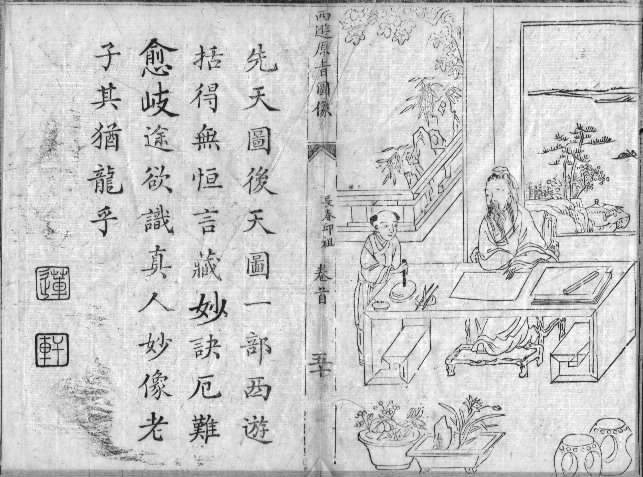 西遊原旨圖像
長春邱祖
卷首
先天圖後天圖一部西遊
括得無恒言藏妙訣厄難
愈岐途欲識真人妙像老
子其猶龍乎
蓮
軒